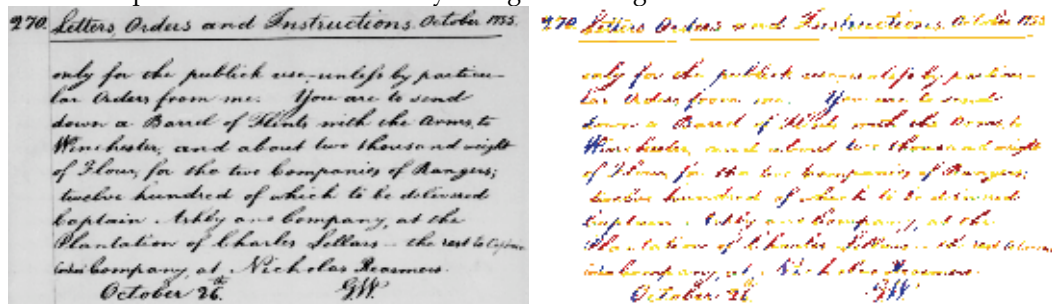 270. Letters, Orders and Instructions. October 1755.
only for the publick use—unless by particu-
lar Orders from me. You are to send
down a Barrel of Flints with the Arms, to
Winchester, and about two thousand weight
of Flour, for the two Companies of Rangers;
twelve hundred of which to be delivered
Captain Ashby and Company, at the
Plantation of Charles Sellars— the rest to
Company, at Nicholas Reasmers.
October 26th. G.W.
270. Letters, Orders and Instructions. October 1755.
only for the publick use—unless by particu-
lar Orders from me. You are to send
down a Barrel of Flints with the Arms, to
Winchester, and about two thousand weight
of Flour, for the two Companies of Rangers;
twelve hundred of which to be delivered
Captain Ashby and Company, at the
Plantation of Charles Sellars— the rest to
Company, at Nicholas Reasmers.
October 26. G.W.